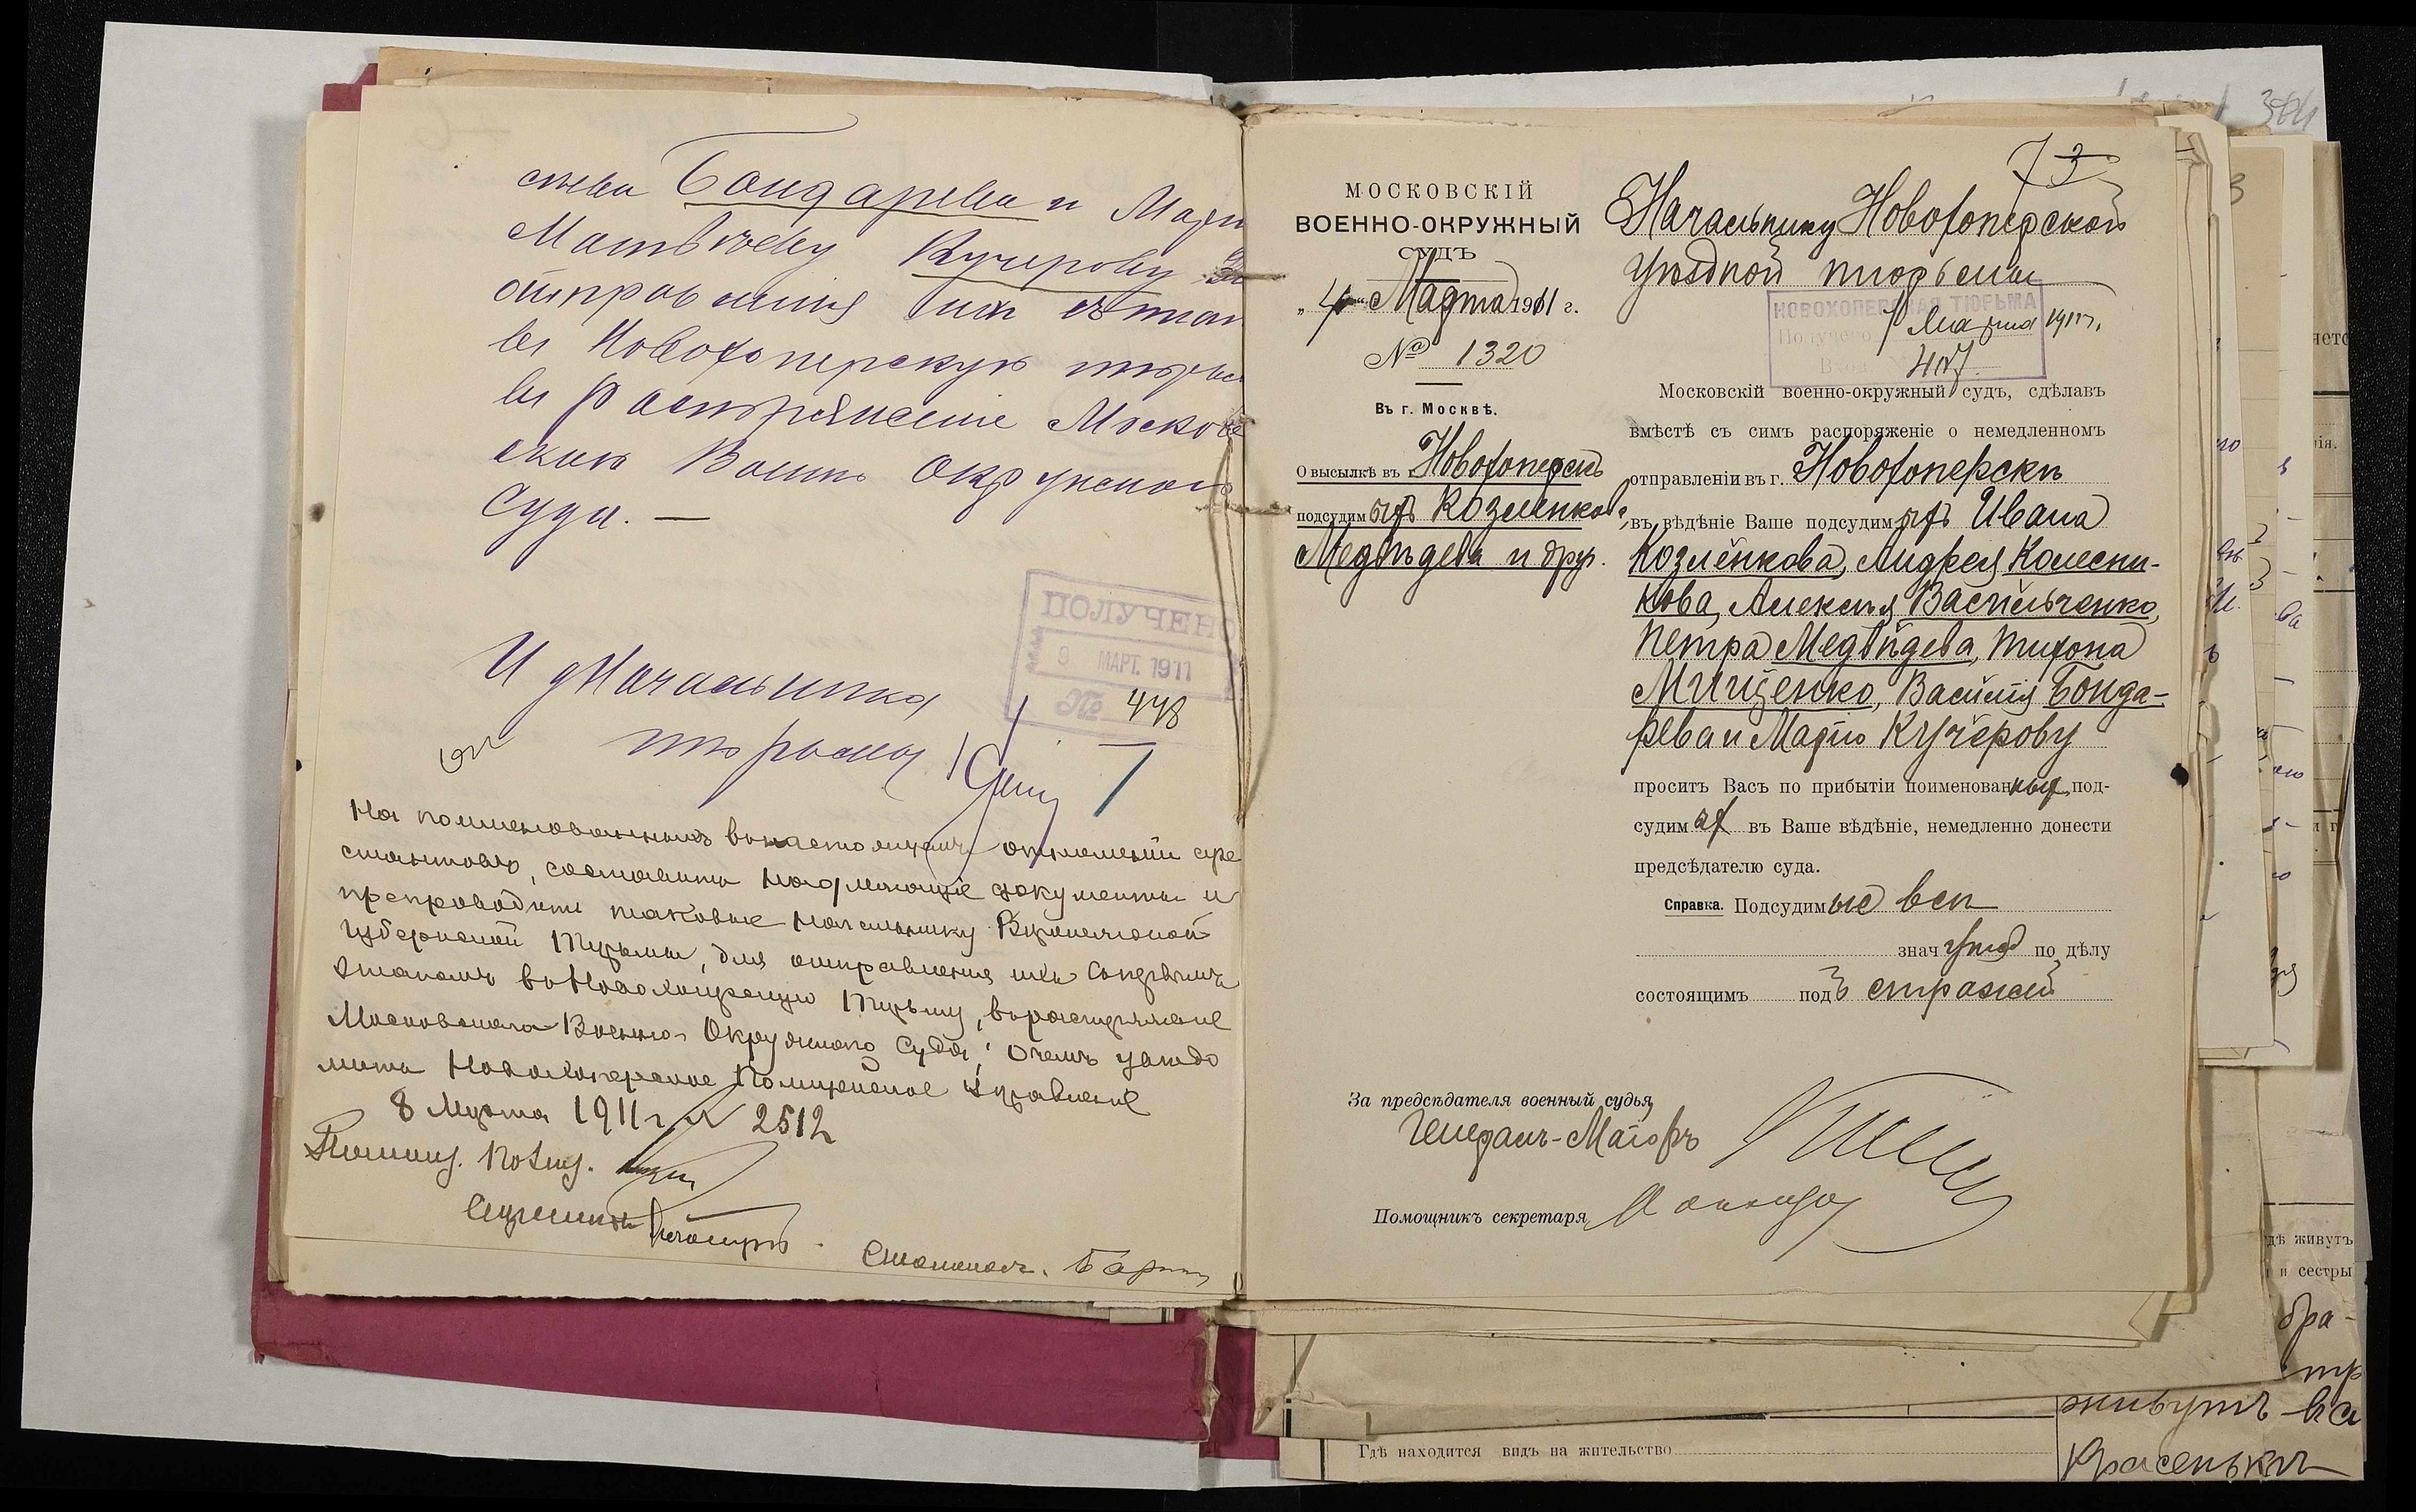 Бондарева и Марiю
Матвѣеву Кучерову
отправленiя ихъ этап
въ Новохоперскую тюрьм
въ распоряженiе Москов
скаго Военно Окружного
Суда. —
ПОЛУЧЕНО
9 МАРТ. 1911
№ 448
И д Начальника
тюрьмы
На поименованныхъ въ настоящемъ отношенiи аре
стантовъ, составить надлежащiе документы и
препроводить таковые Начальнику Воронежской
Губернской Тюрьмы, для отправления ихъ
этапомъ въ Новохоперскую Тюрьму, въ распоряженiе
Московскаго Военно-Окружного Суда, о чемъ увѣдо
мить Новохоперское Полицейское Управленiе
8 Марта 1911 г. № 2512
МОСКОВСКІЙ
ВОЕННО-ОКРУЖНЫЙ
СУДЪ
„4“ Марта 1911 г.
№ 1320
Въ г. Москвѣ.
О высылкѣ въ г. Новохоперскъ
подсудимыхъ Козленкова,
Медвѣдева и друг.
73
Начальнику Новохоперской
уѣздной тюрьмы
НОВОХОПЕРСКАЯ ТЮРЬМА
Получено Марта 1911 г.
Вход
Московскій военно-окружный судъ, сдѣлавъ
вмѣстѣ съ симъ распоряженіе о немедленномъ
отправленіи въ г. Новохоперскъ
въ вѣдѣніе Ваше подсудимыхъ Ивана
Козленкова, Андрея Колесни-
кова, Алексѣя Васильченко,
Петра Медвѣдева, Тихона
Мищенко, Василiя Бонда-
рева и Марiю Кучерову
проситъ Васъ по прибытіи поименованныхъ под-
судимыхъ въ Ваше вѣдѣніе, немедленно донести
предсѣдателю суда.
Справка. Подсудимые всѣ
значутся по дѣлу
состоящимъ подъ стражей
За предсѣдателя военный судья,
Генералъ-Маiоръ
Помощникъ секретаря
дѣ живутъ
и сестры
бра-
живутъ въ
Гдѣ находится видъ на жительство